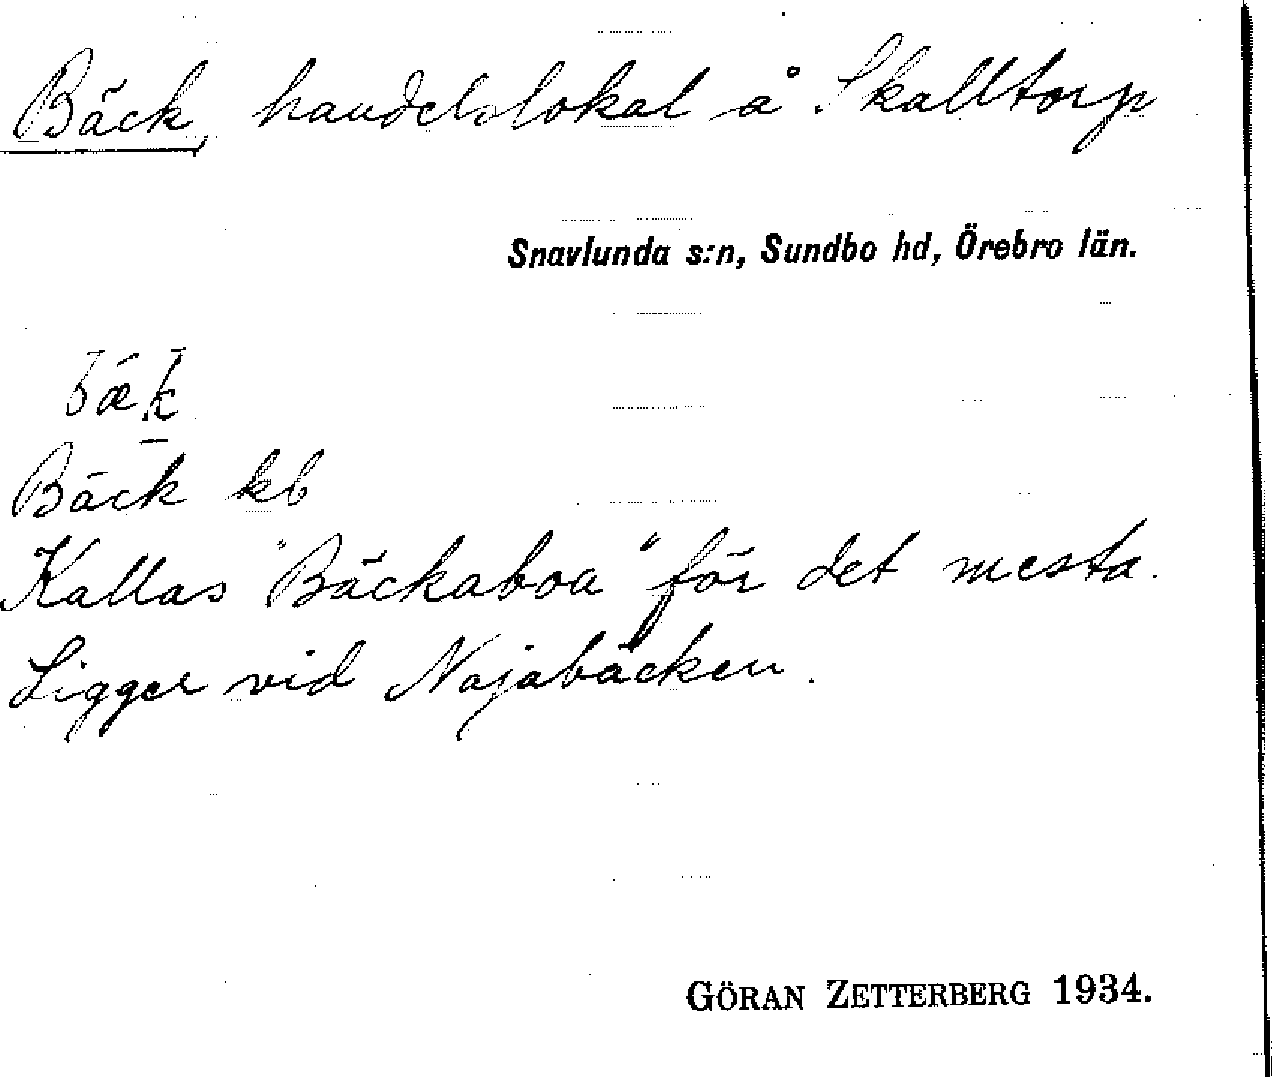 Bäck, handelslokal å Skalltorp
Snavlunda s:n, Sundbo hd, Örebro län.
bæk
Bäck kb
Kallas "Bäckaboa" för det mesta.
Ligger vid Nojabäcken.
GÖRAN ZETTERBERG 1934.